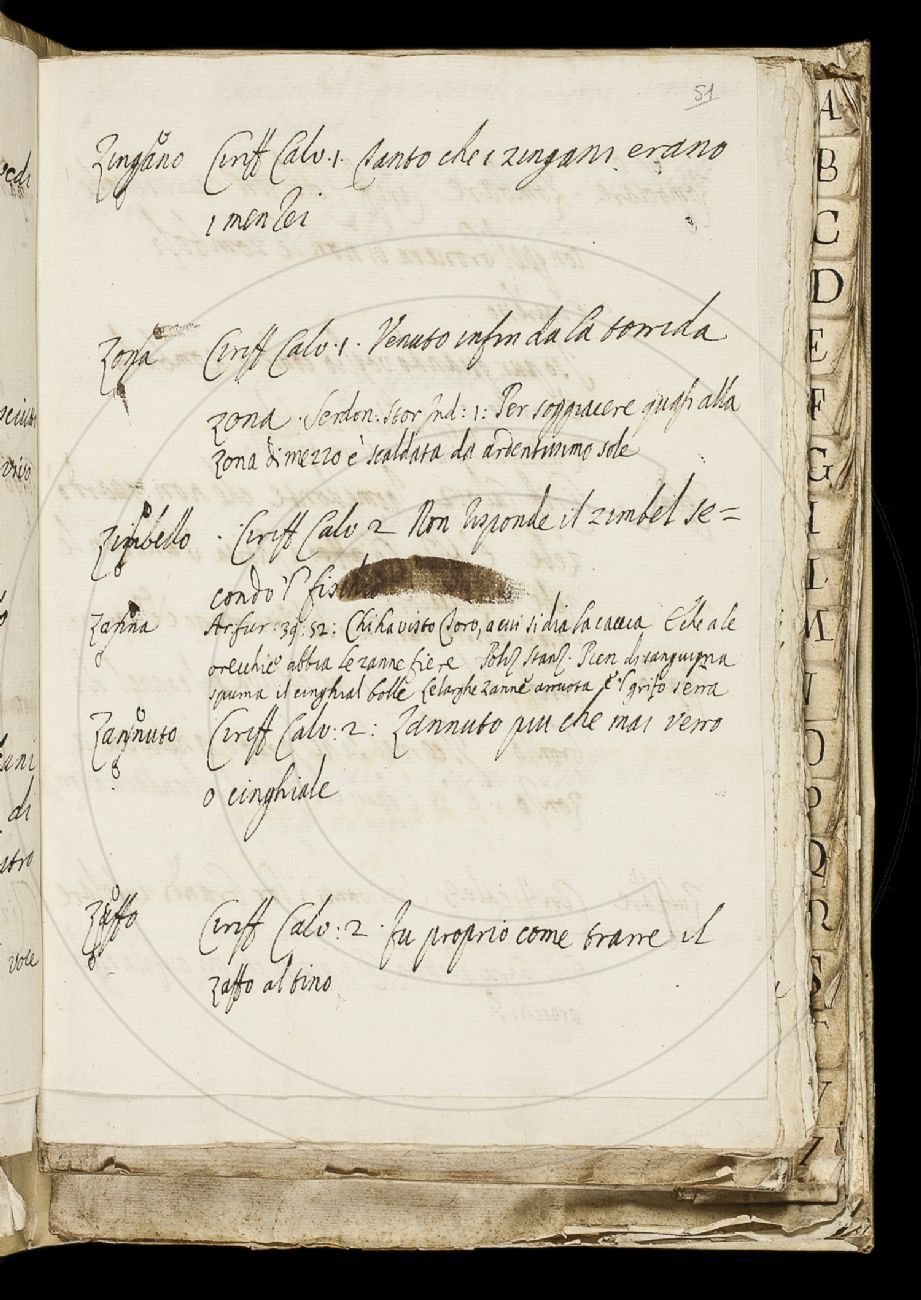 51
Zingano Ciriff Calv: 1. Tanto che i zingani erano
i men rei
Zona Ciriff Calv: 1. Venuto infin da la torrida
zona. Serdon: Stor Ind: 1: Per soggiacere quasi alla
zona di mezzo è scaldata da ardentissimo sole
Zimbello. Ciriff Calv 2 Non risponde il zimbel se=
condo 'l fischio
Zanna Ar: fur: 39: 52: Chi ha visto Toro, a cui si dia la caccia E che a le
orecchie abbia le zanne fiere Poliz Stanz. Pien di sanguigna
spuma il cinghial bolle Le larghe zanne arruota e 'l grifo serra
Zannuto Ciriff Calv: 2: Zannuto piu che mai verro
o cinghiale
Zaffo Ciriff Calv: 2. fu proprio come trarre il
zaffo al tino
A
B
C
D
E
F
G
I
L
M
N
O
P
Q
R
S
V
Z